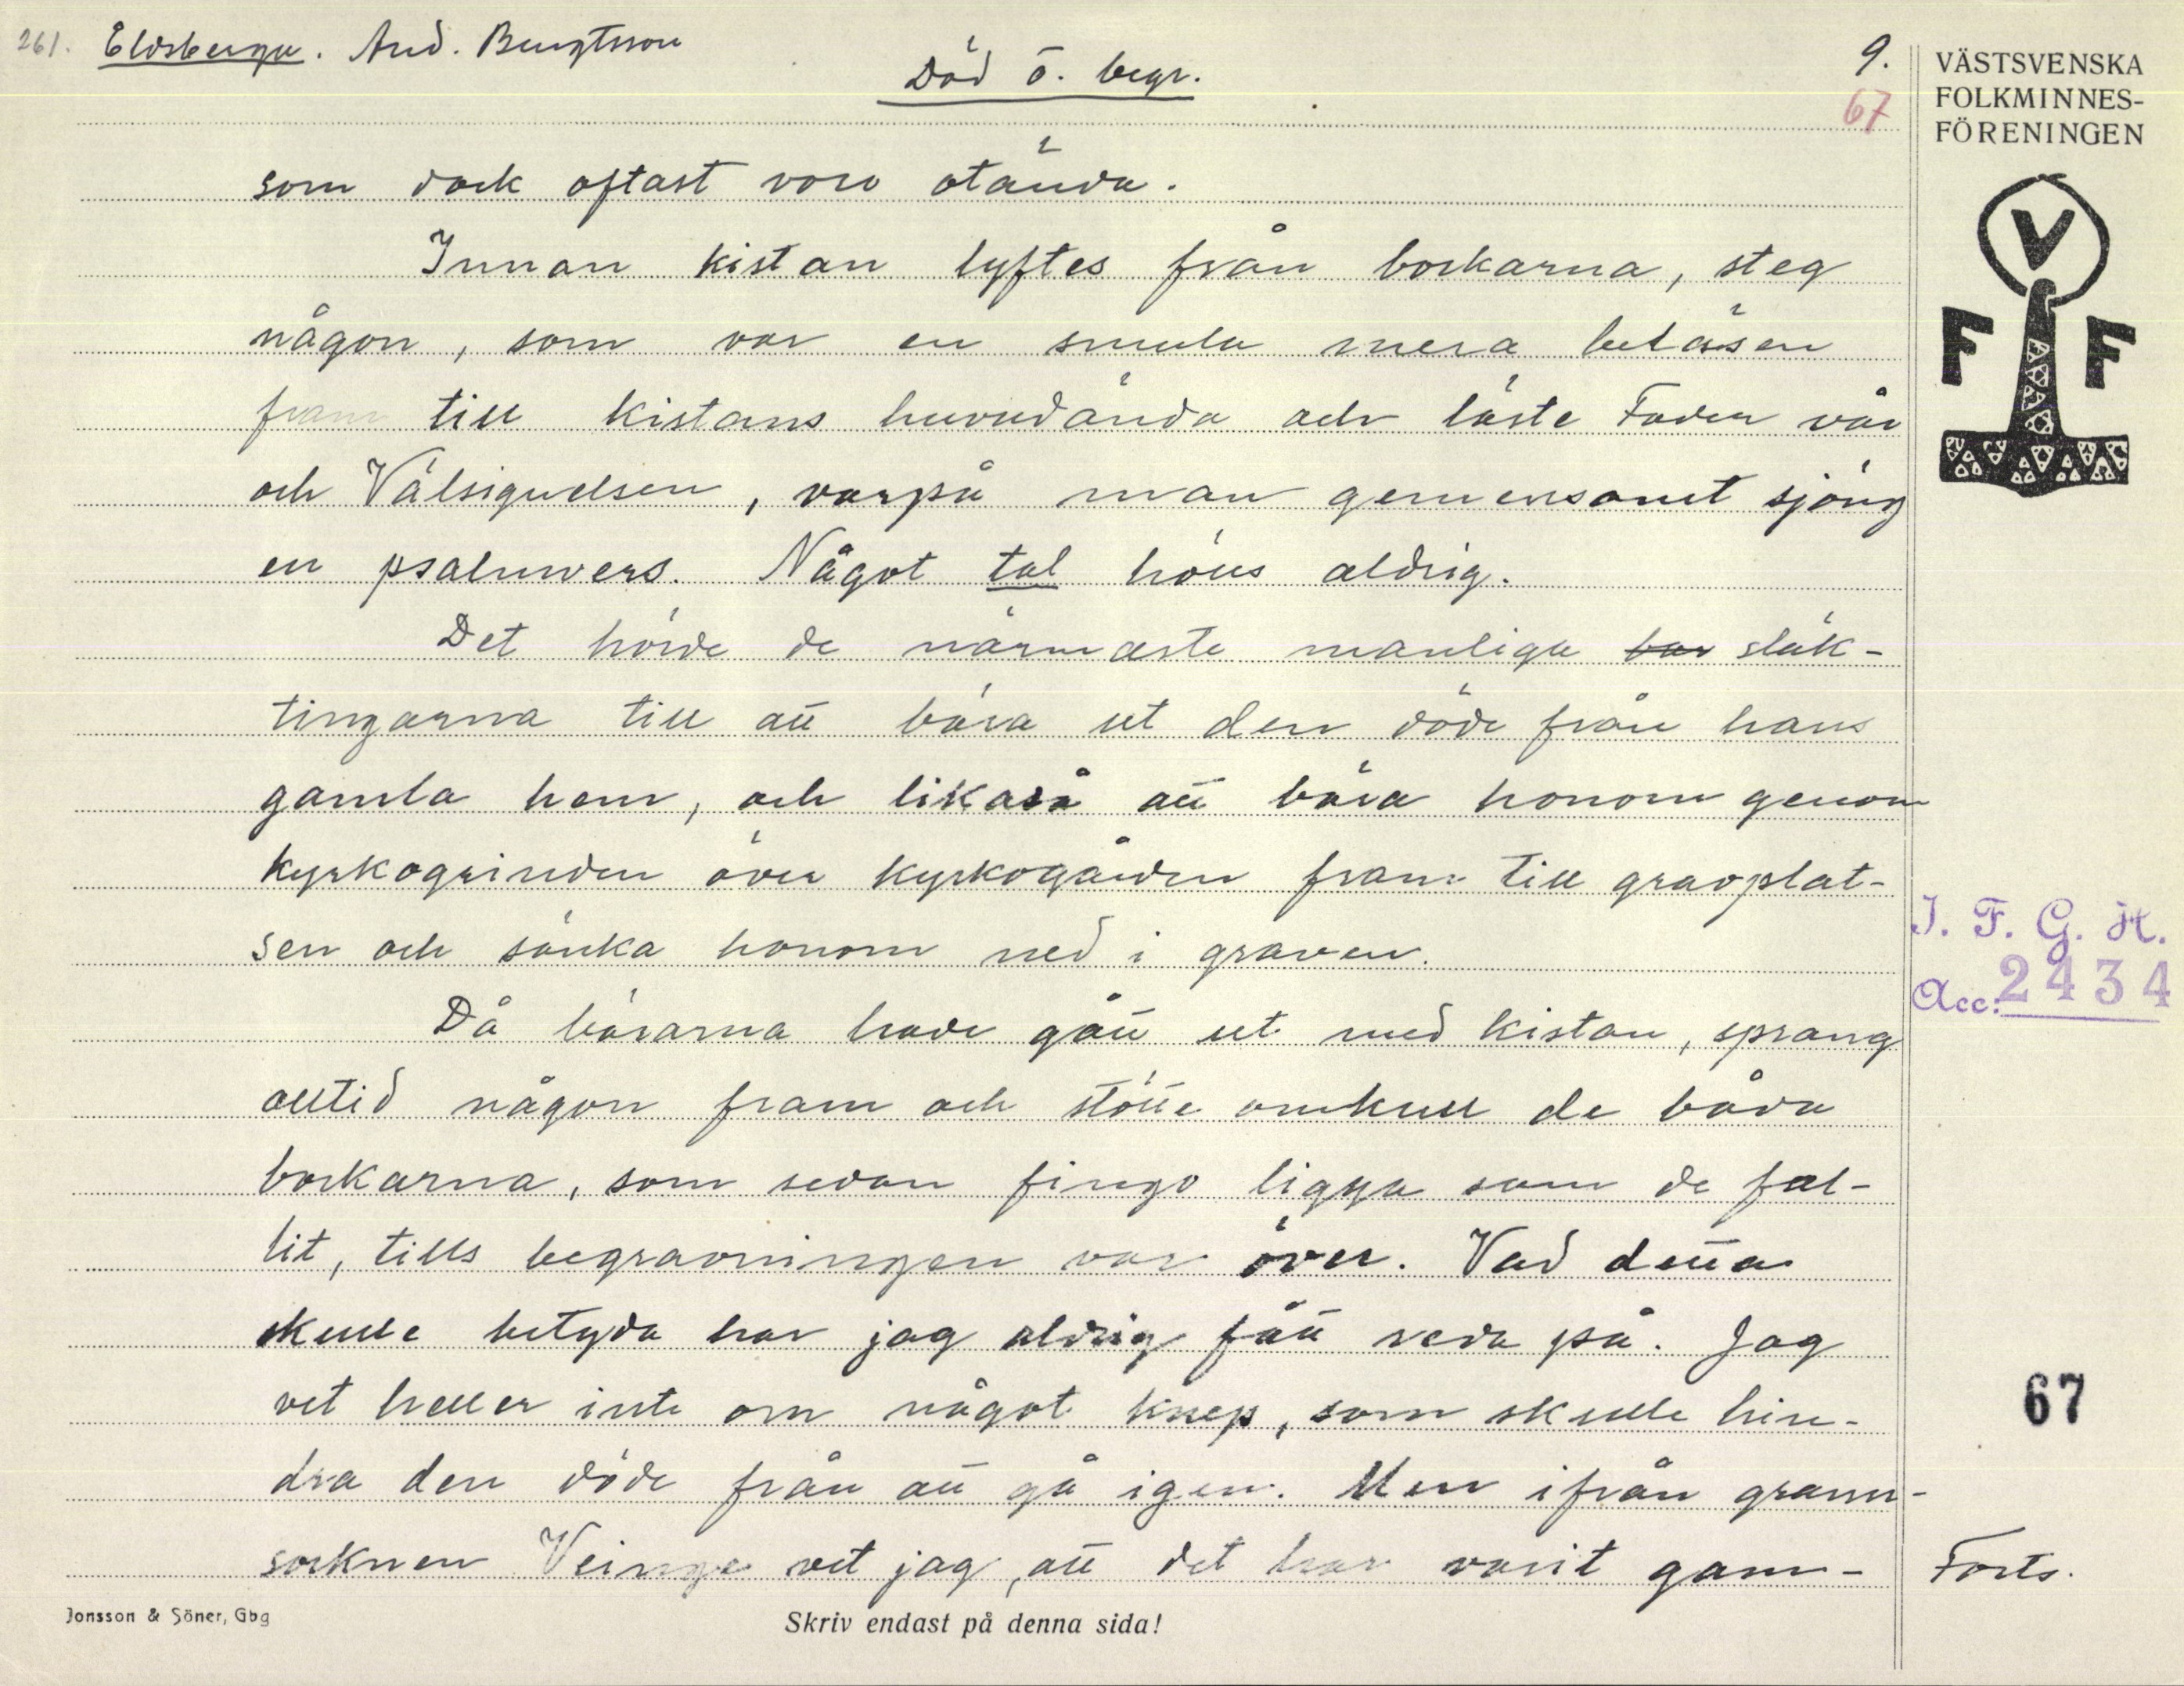 261. Eldsberga. And. Bengtsson
Död o. begr.
9.
67
VÄSTSVENSKA
FOLKMINNES-
FÖRENINGEN
V
F F
som dock oftast voro otända.
Innan kistan lyftes från bockarna, steg
någon, som var en smula mera beläsen
fram till kistans huvudända och läste Fader vår
och Välsignelsen, varpå man gemensamt sjöng
en psalmvers. Något tal hölls aldrig.
Det hörde de närmaste manliga bar släk-
tingarna till att bära ut den döde från hans
gamla hem, och likaså att bära honom genom
kyrkogrinden över kyrkogården fram till gravplat-
sen och sänka honom ned i graven.
Då bärarna hade gått ut med kistan, sprang
alltid någon fram och stötte omkull de båda
bockarna, som sedan fingo ligga som de fal-
lit, tills begravningen var över. Vad detta
skulle betyda har jag aldrig fått reda på. Jag
vet heller inte om något knep, som skulle hin-
dra den döde från att gå igen. Men ifrån grann-
socknen Veinge vet jag, att det har varit gam-
I. F. G. H.
Acc: 2434
67
Forts.
Jonsson & Söner, Gbg
Skriv endast på denna sida!